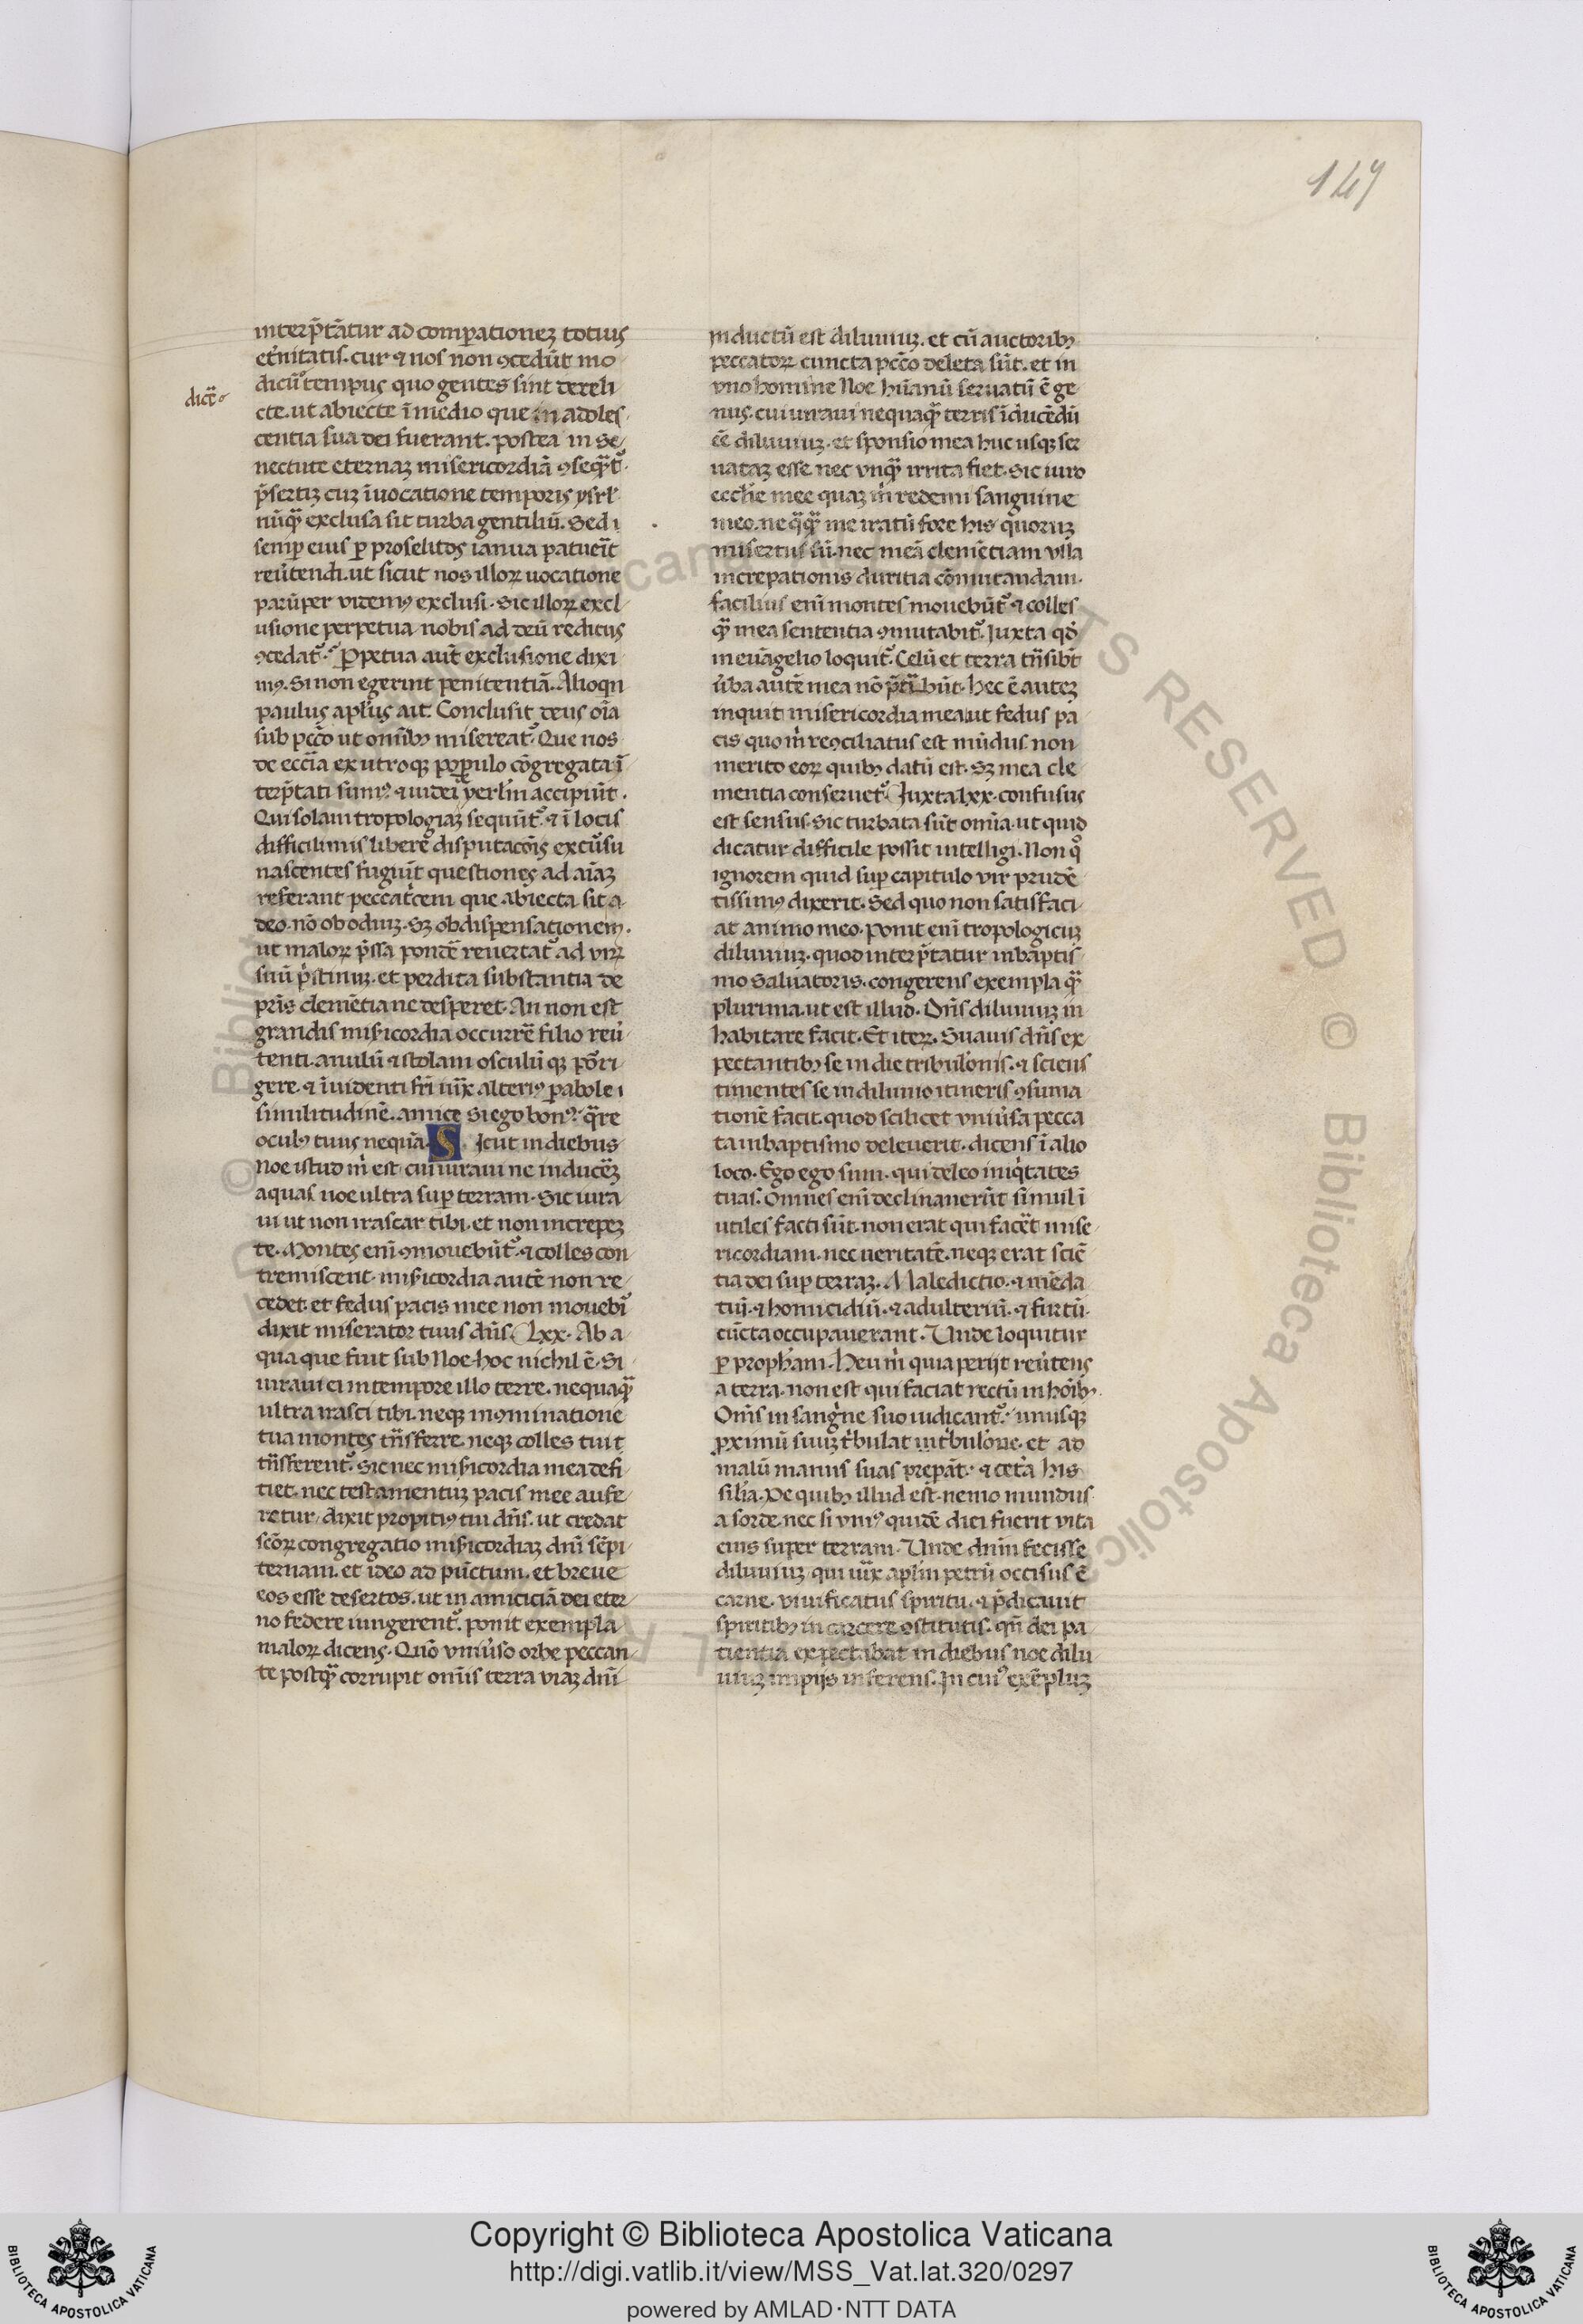 149
interp̄tātur ad comꝑationeꝫ totius
et̄nitatis. cur ⁊ nos non ꝯcedūt mo
dicū tempus quo gentes sint dereli
dicṫe
cte. ut abiecte ī medio que in adoles
centia sua dei fuerant. postea in se
nectute eternaꝫ misericordiā ꝯseqͣt̄.
p̄sertiꝫ cuꝫ īuocatione temporis ysrl̄
nūqͣ exclusa sit turba gentiliū. Sed
semꝑ eius ꝑ proselitos ianua patuerit
reūtendi. ut sicut nos illoꝝ uocatione
parūper videmꝰ exclusi. Sic illoꝝ excl
usione perpetua nobis ad deū reditus
ꝯcedat᷑. Ꝑpetua aut̄ exclusione dixi
mꝰ. Si non egerint penitentiā. Alioqn
paulus apl̄us ait. Conclusit deus oīa
sub pcc̄o ut omībꝫ misereat᷑. Que nos
de eccl̄ia ex utroqꝫ populo cōgregata ī
terp̄tati sumꝰ. ⁊ iudei yerl̄m accipiūt.
Qui solam tropologiaꝫ sequūt᷑. ⁊ ī locis
difficilimis libere disputacōis excūsu
nascentes fugiūt questiones ad aīaꝫ
referant peccat̄cem que abiecta sit a
deo. nō ob odiuꝫ. Sꝫ ob dispensationem.
ut maloꝝ p̄ssa pondē reuertat᷑ ad viꝝ
suū p̄stinuꝫ. et perdita substantia de
pris clemētia ne desperet. An non est
grandis misicordia occurrē filio reū
tenti. anulū ⁊ stolam osculū qꝫ porri
gere. ⁊ īuidenti fri iux̄ alteriꝰ ꝑabole
similitudinē. amice Si ego bonꝰ. qͣre
oculꝰ tuus nequā. Sicut in diebus
Noe istud m̄ est cui iuraui ne inducēꝫ
aquas noe ultra suꝑ terram. Sic iura
ui ut non irascar tibi. et non increpeꝫ
te. Montes enī ꝯmouebūt᷑. ⁊ colles con
tremiscent. misicordia autē non re
cedet. et fedus pacis mee non mouebit᷑
dixit miserator tuus dn̄s. Lxx. Ab a
qua que fuit sub Noe. hoc nichil ē. Si
iuraui ei in tempore illo terre. nequaqͣ
ultra irasci tibi. neqꝫ in ꝯminatione
tua montes tn̄sferre. neqꝫ colles tui t
tn̄sferent᷑. Sic nec misicordia mea defi
ciet. nec testamentuꝫ pacis mee aufe
retur. dixit propitiꝰ tui dn̄s. ut credat
scōꝝ congregatio misicordiaꝫ dn̄i sēpi
ternam. et ideo ad pūctum. et breue
eos esse desertos. ut in amiciciā dei eter
no federe iungerent᷑. ponit exempla
maloꝝ dicens. Quō vniūso orbe peccan
te postqͣ corrupit omīs terra viaꝫ dn̄i
inductū est diluuiuꝫ. et cū auctoribꝫ
peccatoꝝ cuncta pcc̄o deleta sūt. et in
vno homine Noe humanū seruatū ē ge
nus. cui iuraui nequaqͣ terris īducēdū
eē diluuiuꝫ. et sponsio mea huc usqꝫ ser
uataꝫ esse. nec vnqͣ irrita fiet. Sic iuro
ecclie mee quaꝫ m̄ redemi sanguine
meo. ne qͣqͣ me iratū fore his quoruꝫ
misertus sū. nec meā clemētiam vlla
increpationis duritia cōmutandam.
facilius enī montes mouebūt᷑. ⁊ colles
qͣ mea sententia ꝯmutabit᷑. Iuxta qd̄
in euāgelio loquit᷑. Celū et terra tn̄sibt̄
ūba autē mea nō p̄t'ibūt. Hec ē auteꝫ
inquit misericordia mea. ut fedus pa
cis quo m̄ reꝯciliatus est mūdus. non
merito eoꝝ quibꝫ datū est. Sꝫ mea cle
mentia conseruet᷑. Iuxta lxx. confusus
est sensus. Sic turbata sūt omīa. ut quid
dicatur difficile possit intelligi. Non qͦ
ignorem quid suꝑ capitulo vir prudē
tissimꝰ dixerit. Sed quo non satisfaci
at animo meo. Ponit enī tropologicuꝫ
diluuiuꝫ. quod interp̄tatur in baptis
mo Saluatoris. congerens exempla qͣ
plurima. ut est illud. Dn̄s diluuiuꝫ in
habitare facit. Et iteꝝ. Suauis dn̄s ex
pectantibꝫ se in die tribulōnis. ⁊ sciens
timentes se in diluuio itineris ꝯsuma
tionē facit. quod scilicet vniūsa pecca
ta in baptismo deleuerit. dicens ī alio
loco. Ego ego sum. qui deleo iniqͥtates
tuas. Omnes enī declinauerūt simul ī
utiles facti sūt. non erat qui facēt mise
ricordiam. nec ueritatē. neqꝫ erat sciē
tia dei suꝑ terraꝫ. Maledictio. ⁊ mēda
tiū. ⁊ homicidiū. ⁊ adulteriū. ⁊ furtū.
cūcta occupauerant. Unde loquitur
ꝑ propham. Heu m̄ quia perijt reūtens
a terra. non est qui faciat rectū in hoībꝫ.
Omīs in sangͥne suo iudicant᷑. unusqꝫ
ꝓximū suuꝫ tͥbulat int̄bulōne. et ad
malū manus suas prepāt. ⁊ cet̄a his
silīa. De quibꝫ illud est. nemo mundus
a sorde. nec si vniꝰ quidē diei fuerit vita
eius super terram. Unde dn̄m fecisse
diluuiuꝫ. qui iux̄ aplm petrū occisus ē
carne. viuificatus spiritu. ⁊ p̄dicauit
spiritibꝫ in carcere ꝯstitutis. qn̄ dei pa
tientia expectabat in diebus noe dilu
uiuꝫ impijs inferens. In cuiꝰ exēpluꝫ
Copyright © Biblioteca Apostolica Vaticana
http://digi.vatlib.it/view/MSS_Vat.lat.320/0297
powered by AMLAD·NTT DATA
BIBLIOTECA APOSTOLICA VATICANA
BIBLIOTECA APOSTOLICA VATICANA